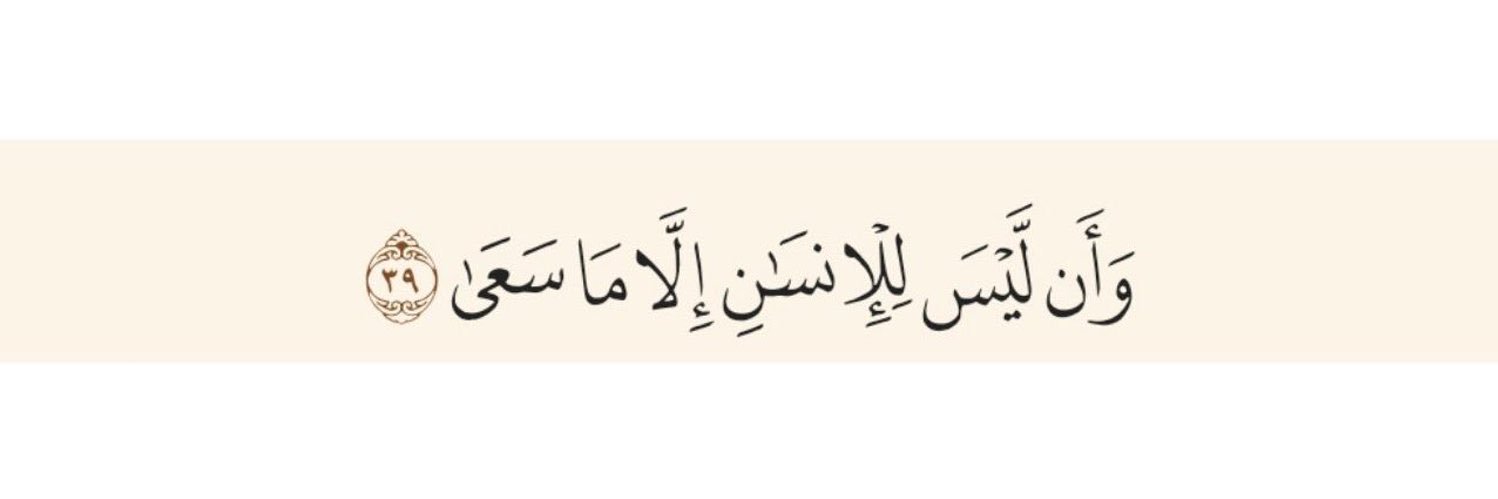 وَأَن لَّيْسَ لِلْإِنسَٰنِ إِلَّا مَا سَعَىٰ ٣٩